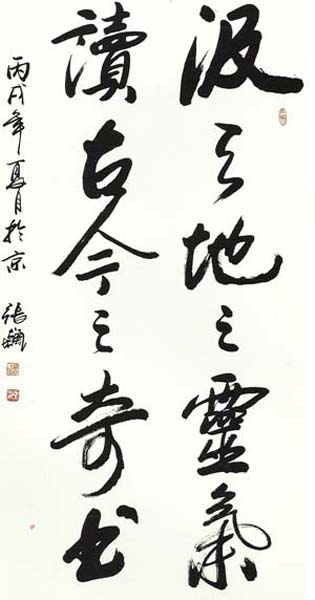 汲天地之靈氣
讀古今之奇書
丙戌年夏月於京 張